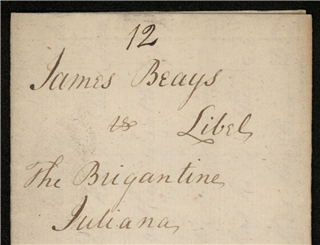 12
James Beays
vs Libel
The Brigantine
Juliana